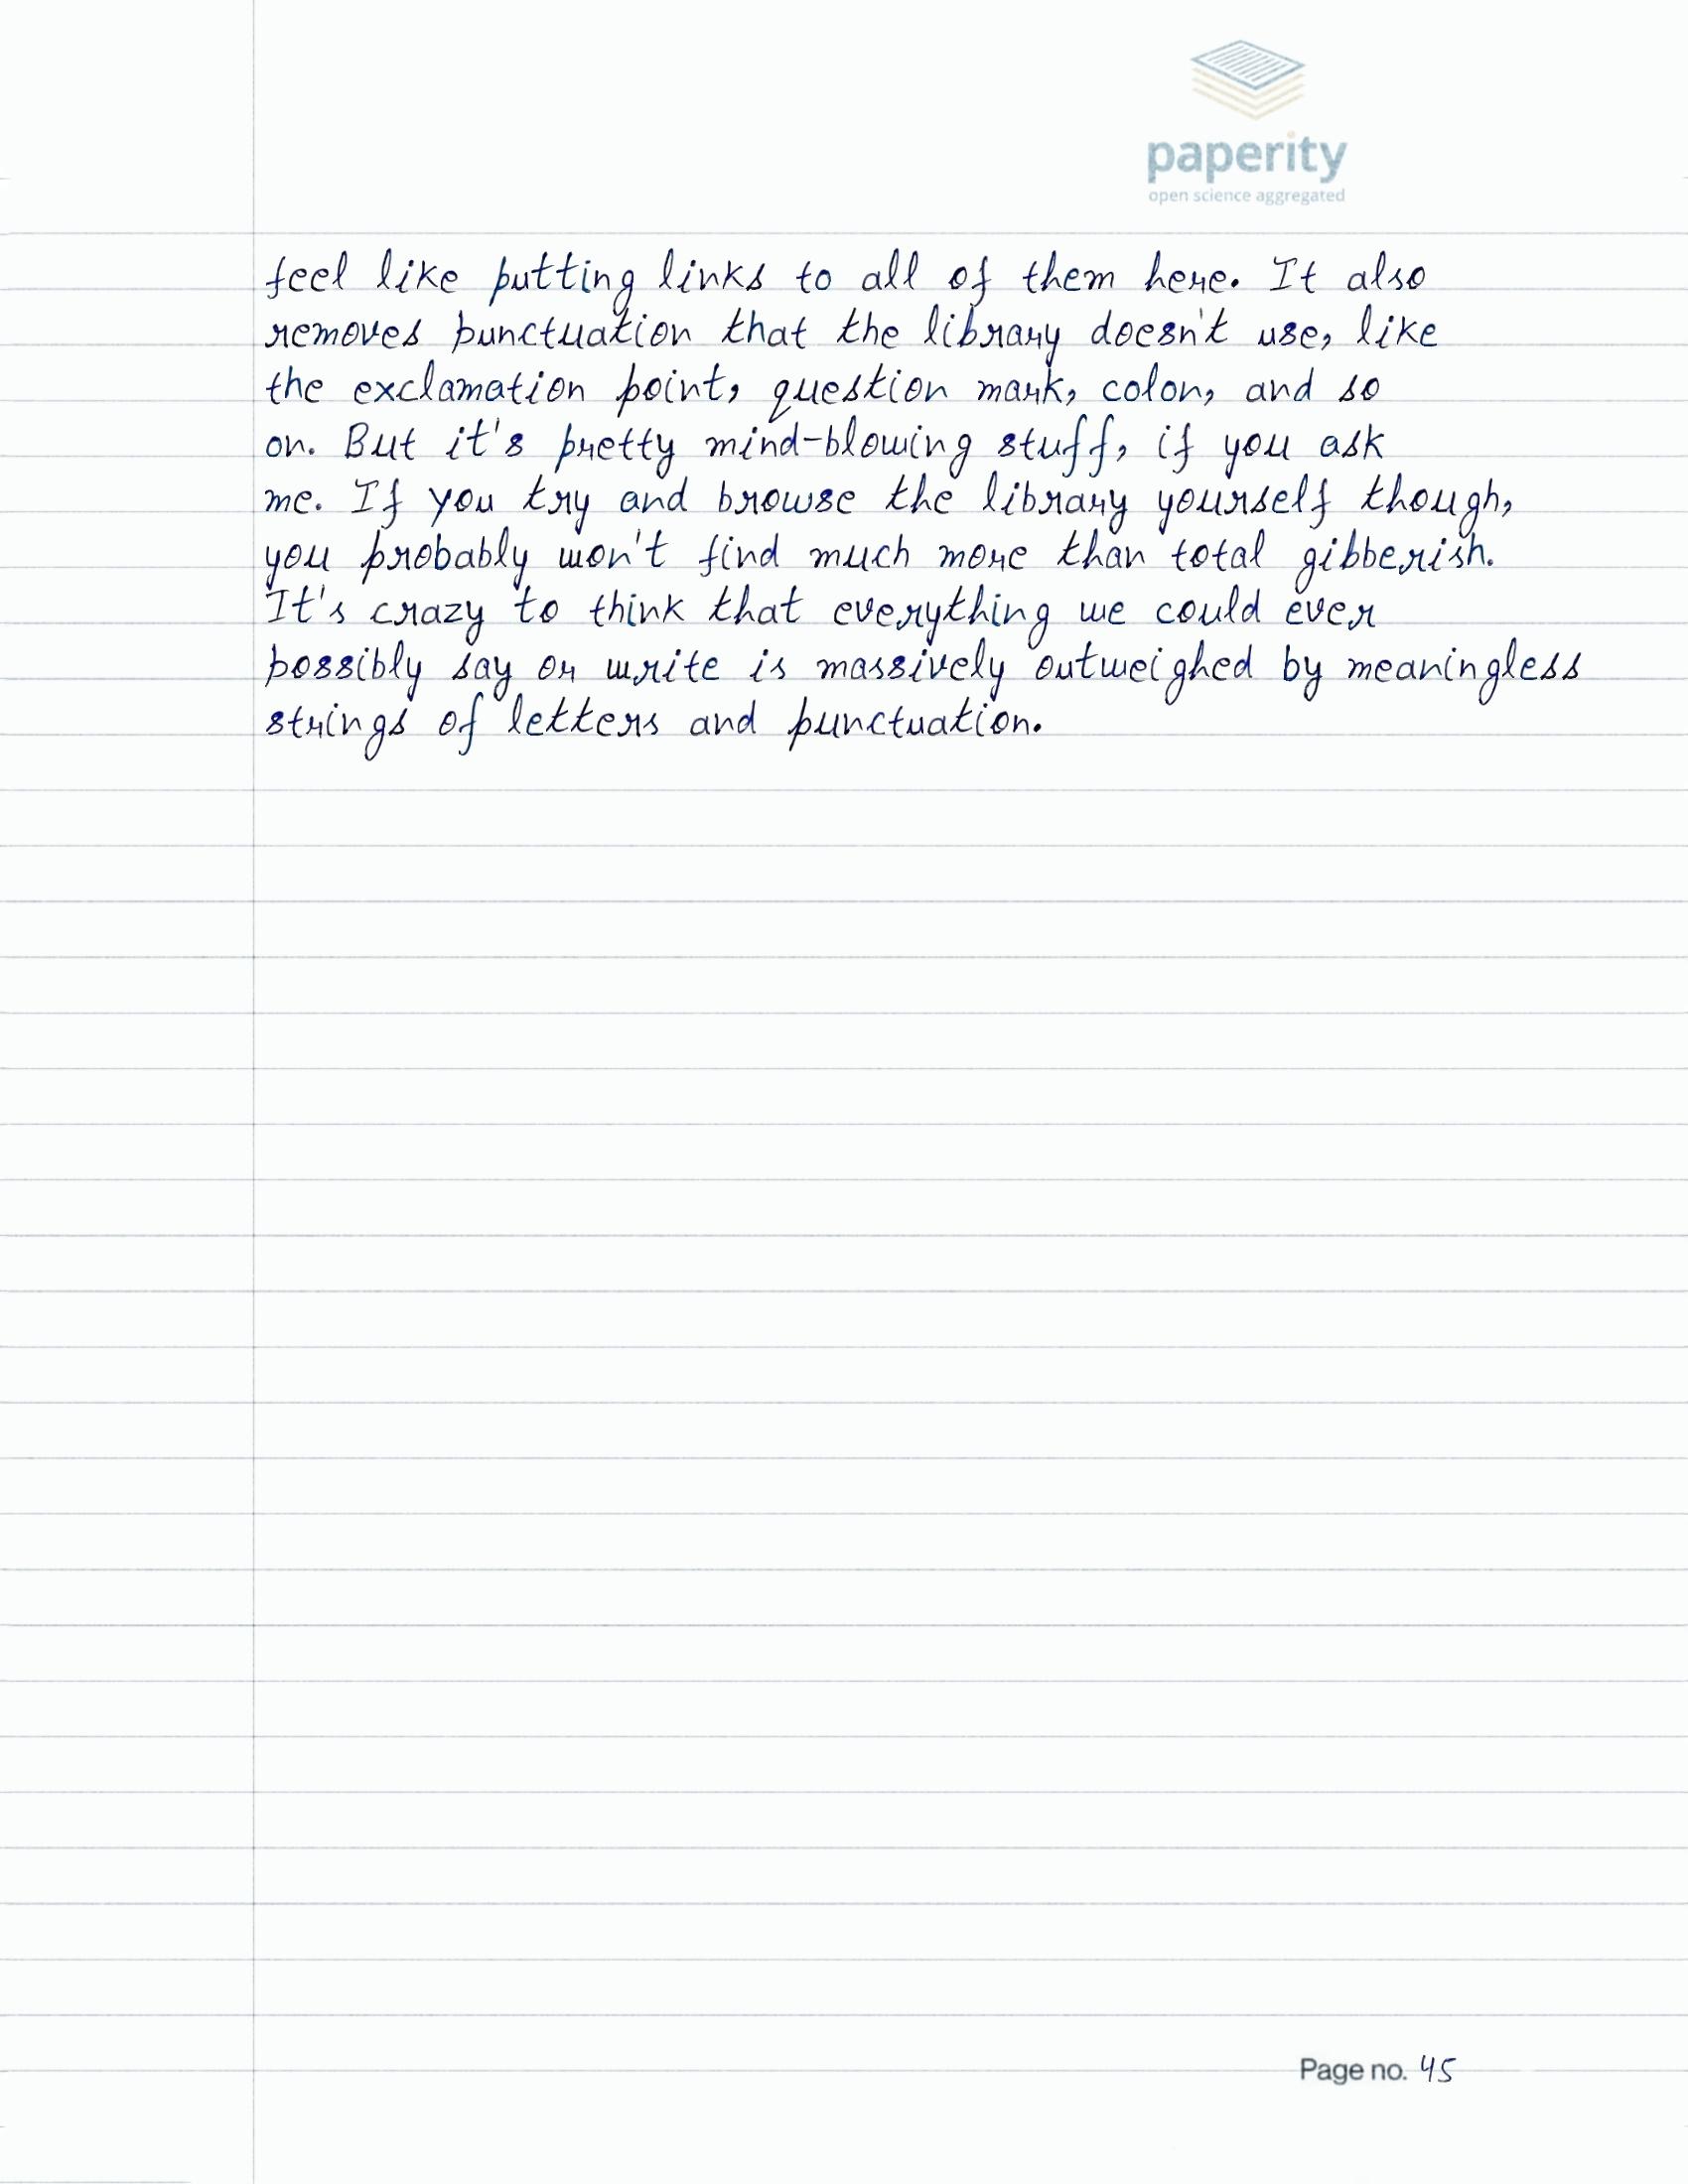 paperity
open science aggregated
feel like putting links to all of them here. It also
removes punctuation that the library doesn't use, like
the exclamation point, question mark, colon, and so
on. But it's pretty mind-blowing stuff, if you ask
me. If you try and browse the library yourself though,
you probably won't find much more than total gibberish.
It's crazy to think that everything we could ever
possibly say or write is massively outweighed by meaningless
strings of letters and punctuation.
Page no. 45